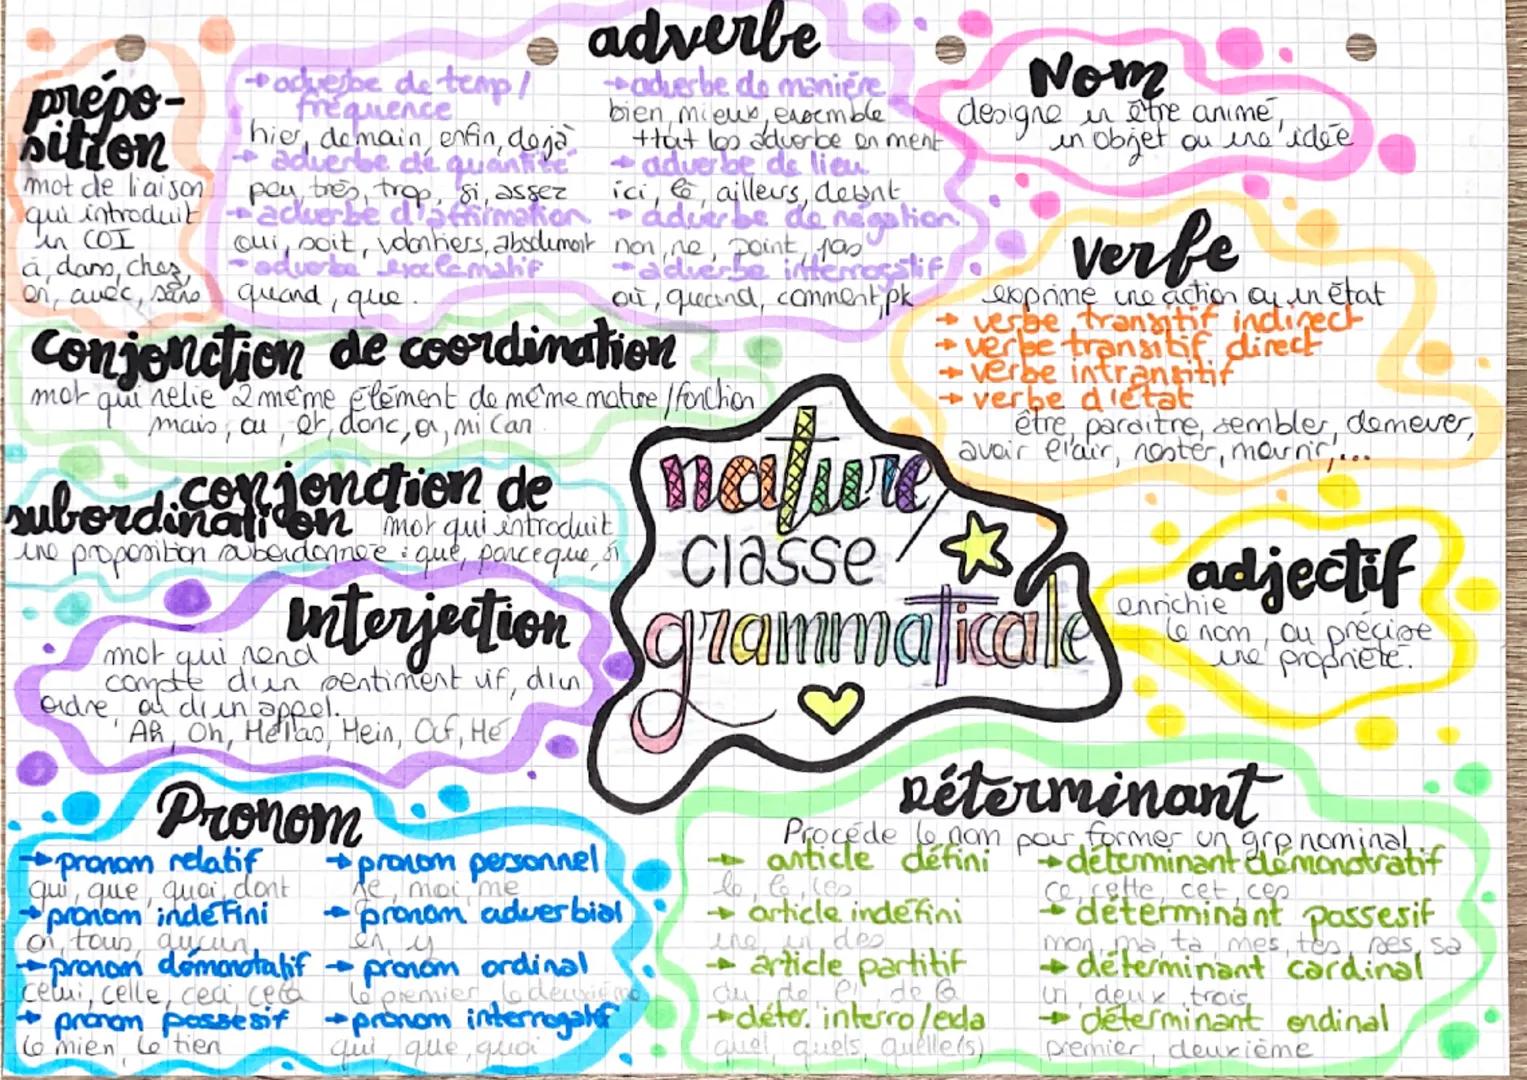 prépo-
sition
mot de liaison
qui introduit
un COI
à, dans, chez,
en, avec, sans
adverbe
→adverbe de temp/
fréquence
hier, demain, enfin, dejà
→ adverbe de quantité
peu, très, trop, si, assez
→ adverbe d'affirmation
oui, soit, volontiers, absolument
→ adverbe exclamatif
quand, que.
→adverbe de manière
bien, mieux, ensemble
+tout les adverbe en ment
→ adverbe de lieu
ici, là, ailleurs, devant
→ adverbe de négation
non, ne, point, pas
→ adverbe interrogatif
où, quand, comment, pk
Nom
designe un être animé,
un objet ou une idée
Verbe
exprime une action ou un état
→ verbe transitif indirect
→ verbe transitif direct
→ verbe intransitif
→ verbe d'état
être, paraitre, sembler, demeurer,
avoir l'air, rester, mourrir,...
Conjonction de coordination
mot qui relie 2 même élément de même nature/fonction
mais, ou, et, donc, or, ni car
conjonction de
subordination mot qui introduit
une proposition subordonnée : que, parceque, si
nature/
classe
grammaticale
adjectif
enrichie
le nom, ou précise
une propriété.
Interjection
mot qui rend
compte d'un sentiment vif, d'un
ordre ou d'un appel.
Ah, Oh, Hélas, Hein, Ouf, Hé
Pronom
→ pronom relatif
qui, que, quoi, dont
→ pronom indéfini
on, tous, aucun
→ pronom démonstatif
celui, celle, ceci, cela
→ pronom possesif
le mien, le tien
→ pronom personnel
je, moi, me
→ pronom adverbial
en, y
→ pronom ordinal
le premier, le deuxième
→ pronom interrogatif
qui, que, quoi
Déterminant
Procéde le nom pour former un grp nominal
→ article défini
le, la, les
→ article indéfini
une, un, des
→ article partitif
du, de, l', de la
→ déter. interro/excla
quel, quels, quelle(s)
→ déterminant démonstratif
ce, cette, cet, ces
→ déterminant possesif
mon, ma, ta, mes, tes, ses, sa
→ déterminant cardinal
un, deux, trois
→ déterminant ordinal
premier, deuxième